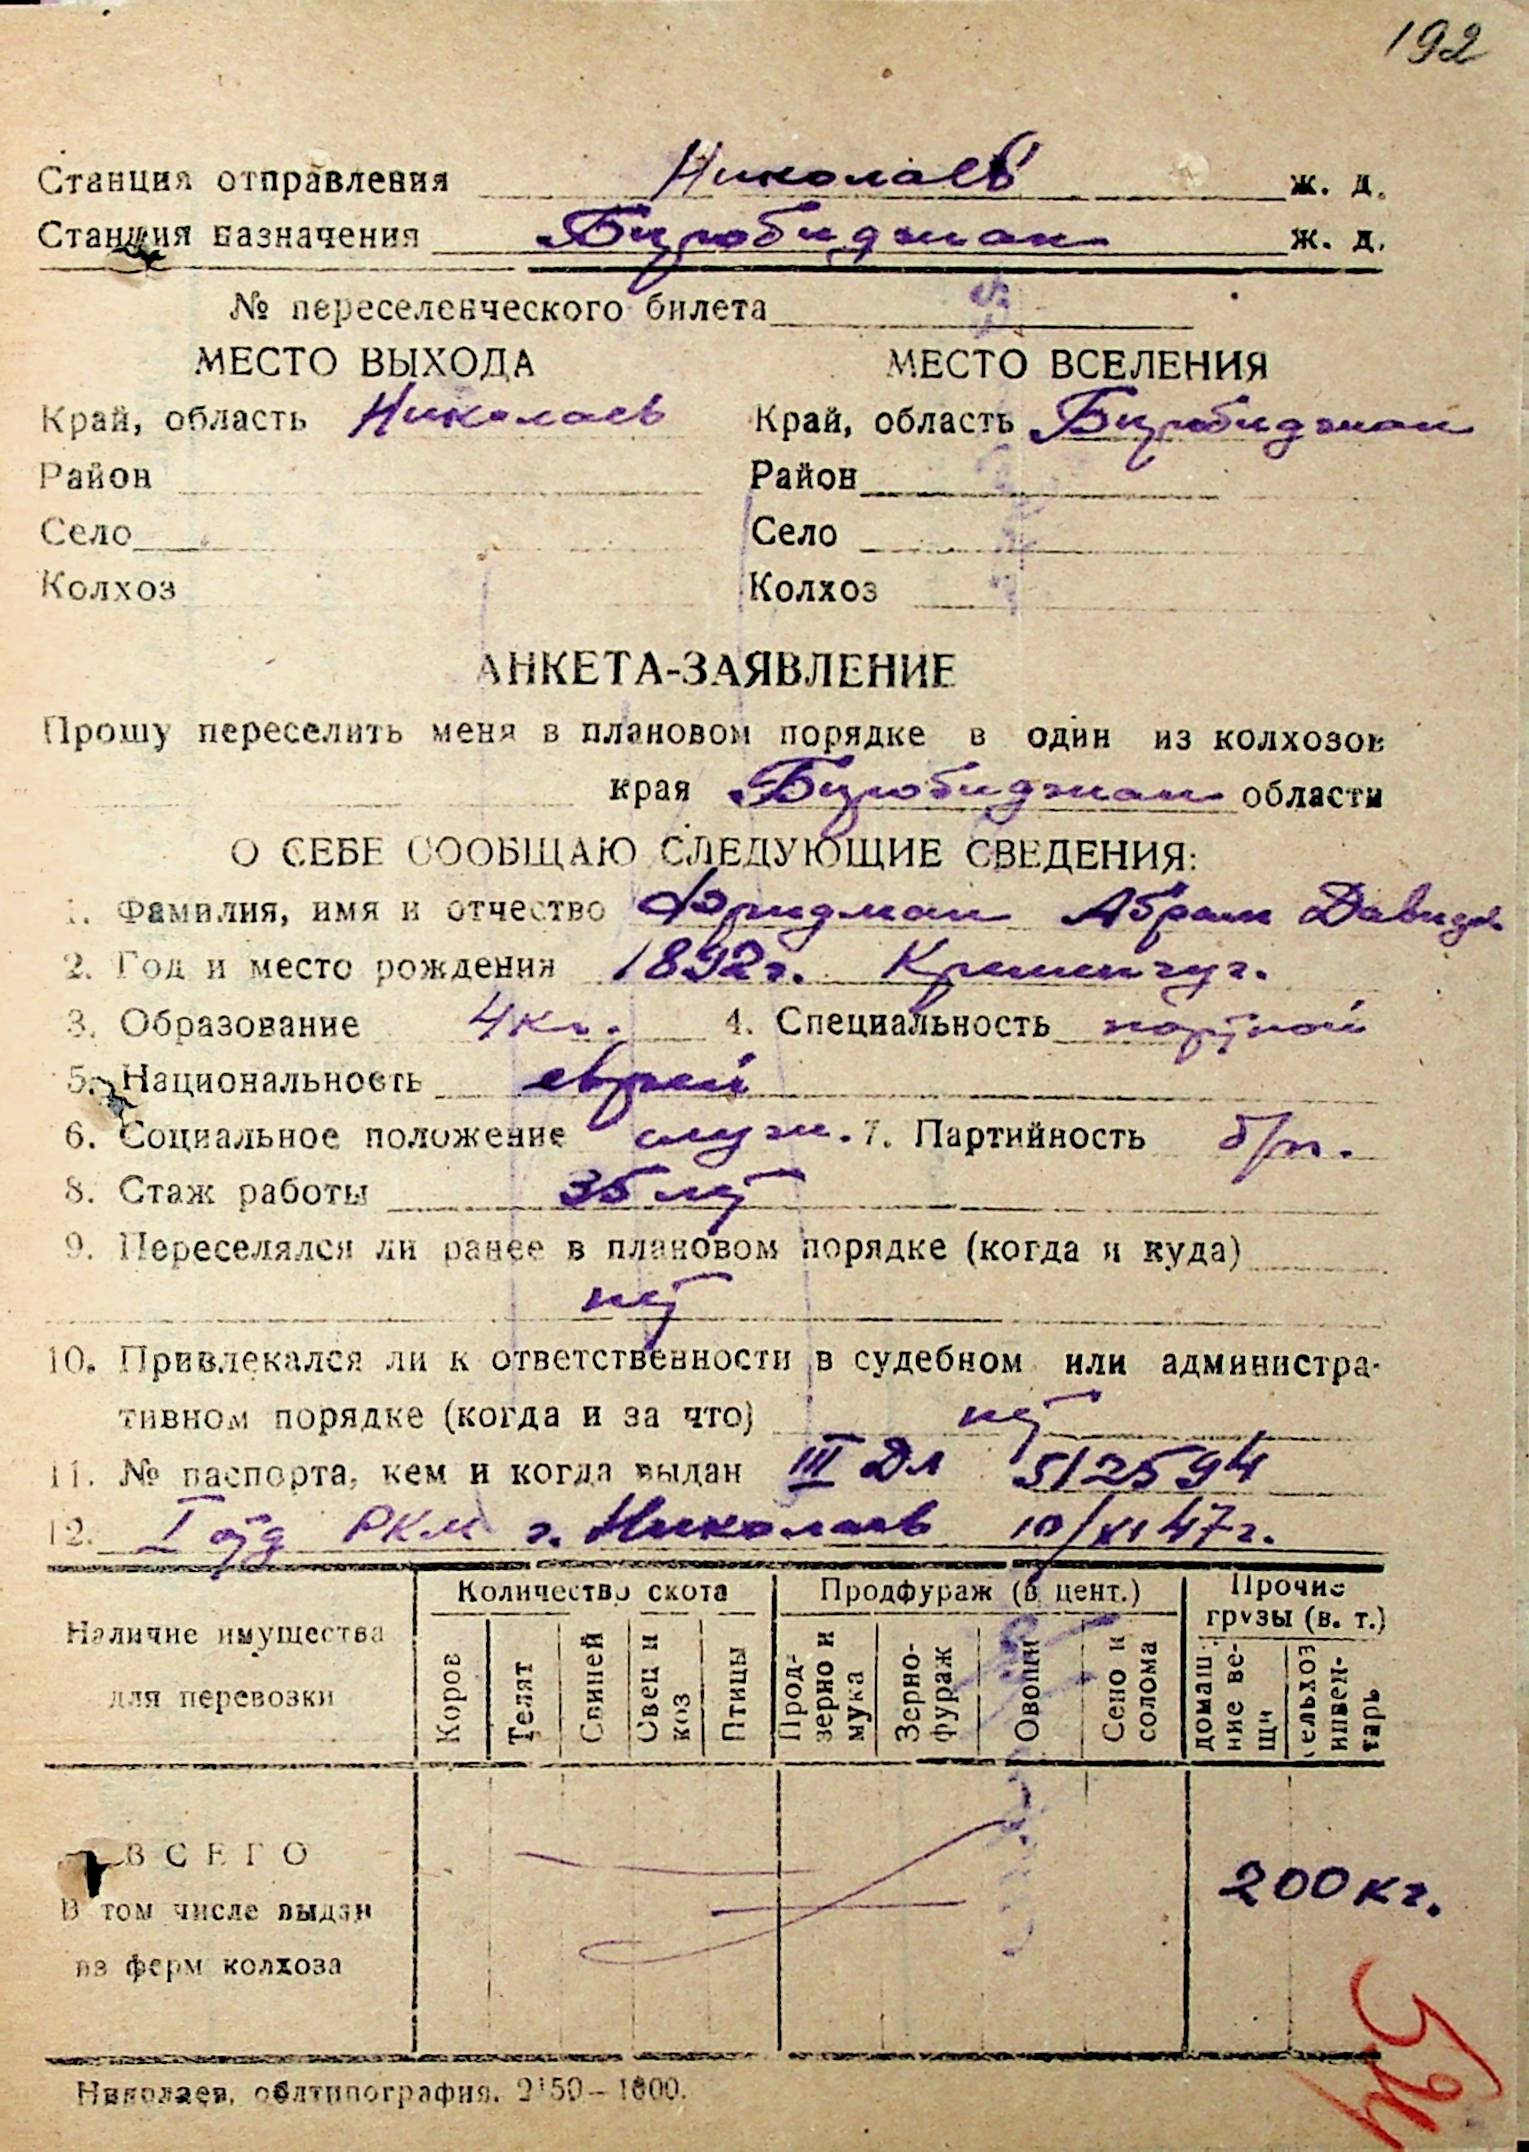 192
Станция отправления Николаев ж. д.
Станция назначения Биробиджан ж. д.
№ переселенческого билета
МЕСТО ВЫХОДА МЕСТО ВСЕЛЕНИЯ
Край, область Николаев Край, область Биробиджан
Район Район
Село Село
Колхоз Колхоз
АНКЕТА-ЗАЯВЛЕНИЕ
Прошу переселить меня в плановом порядке в один из колхозов
края Биробиджан области
О СЕБЕ СООБЩАЮ СЛЕДУЮЩИЕ СВЕДЕНИЯ:
1. Фамилия, имя и отчество Фридман Абрам Давидов.
2. Год и место рождения 1892г. Кременчуг.
3. Образование 4кл. 4. Специальность портной
5. Национальность еврей
6. Социальное положение служ. 7. Партийность б/п.
8. Стаж работы 35 лет
9. Переселялся ли ранее в плановом порядке (когда и куда)
нет
10. Привлекался ли к ответственности в судебном или администра-
тивном порядке (когда и за что) нет
11. № паспорта, кем и когда выдан III ДЛ 512594
12. I отд РКМ г. Николаев 10/XI 47г.
Наличие имущества для перевозки
Количество скота Продфураж (в цент.) Прочие грузы (в. т.)
Коров Телят Свиней Овец и коз Птицы Прод-зерно и мука Зерно-фураж Овощи Сено и солома домаш-ние ве-щи сельхоз инвен-тарь
ВСЕГО
200 кг.
В том числе выдан
из ферм колхоза
Николаев, облтипография. 2150–1000.